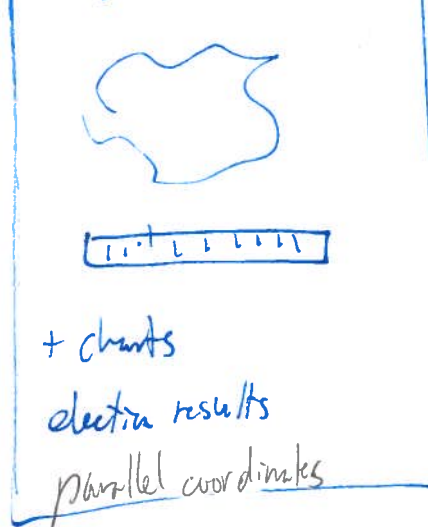 + charts
election results
parallel coordinates